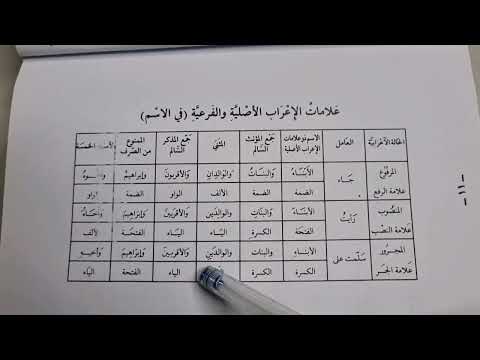 عَلَامَاتُ الإِعْرَابِ الأَصْلِيَّةِ والفَرعيَّةِ (في الاسْمِ)
الحالة الإعرابية العَامل الاسم وعلامات الإعراب الأصلية جَمْع المؤنث السَّالم المُثنَّى جَمْع المذكر السَّالم الممنوع من الصَّرف الأسماء الخمسة
المرفُوع جَاء الأَبْنَاءُ والبنَاتُ والوالدَانِ والأقربونَ وإبراهيمُ
علامة الرفع الضمة الضمة الألف الواو الضمة الواو
المنصُوب رَأيتُ الأبناءَ والبناتِ والوالدَين والأقربينَ وإبراهيمَ وأخاهُ
علامة النصْب الفتحَة الكسرة اليَاء اليَاء الفتحَة الألف
المجْرُور سَلّمت على الأبناءِ والبنات والوالدَين والأقربينَ وإبراهيمَ وأخيهِ
علامة الجَر الكسرة الكسرة الياء الفتحة اليَاء
- ١١ -